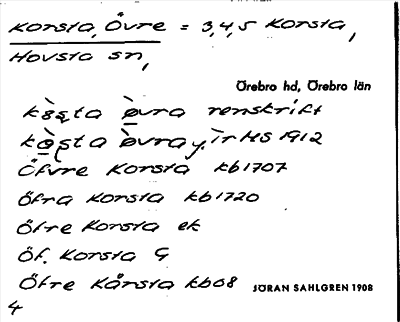 Korsta, Övre = 3,4,5 Korsta,
Hovsta sn,
Örebro hd, Örebro län
övra renskrift
övra y. ir HS 1912
Öfvre Korsta kb 1707
Öfra Korsta kb 1720
Öfre Korsta ek
Öf. Korsta G
Öfre Kårsta kb 08
JÖRAN SAHLGREN 1908
4